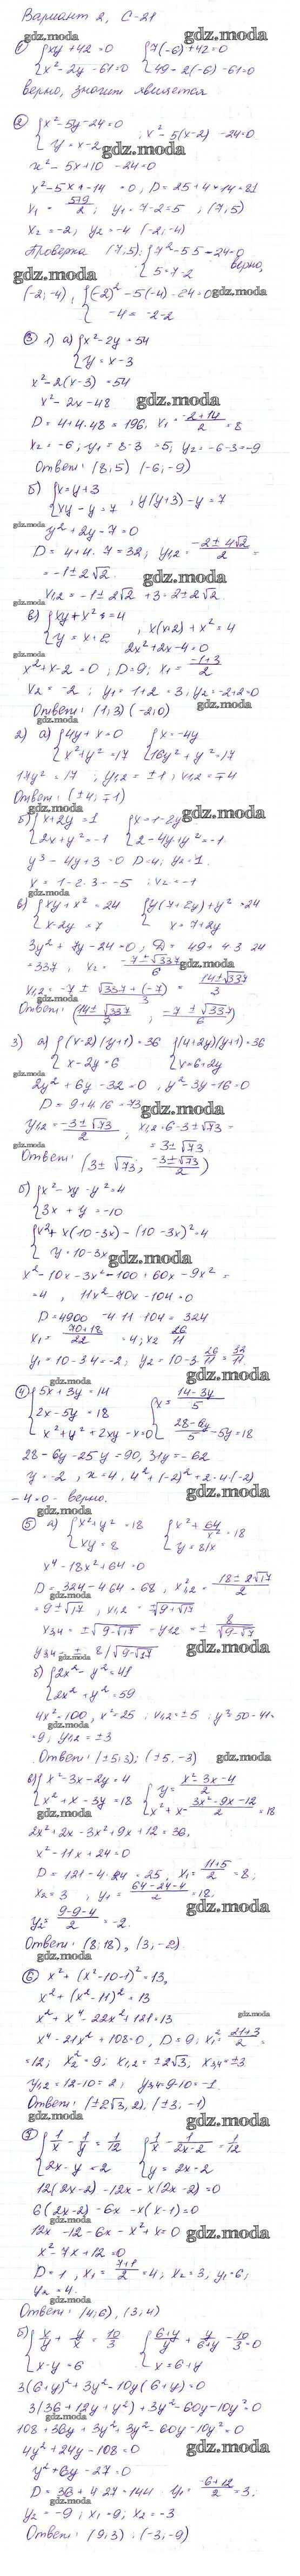 Вариант 2, С-21
① {xy+42=0 {7(-6)+42=0
{x²-2y-61=0 {49-2(-6)-61=0
верно, значит является
② {x²-5y-24=0
{y=x-2 ; x²-5(x-2)-24=0
x²-5x+10-24=0
x²-5x-14=0, D=25+4*14=81
x₁=5+9/2; y₁=7-2=5, (7;5)
x₂=-2; y₂=-4 (-2;-4)
Проверка (7;5): {7²-5·5-24=0
{5=7-2 верно,
(-2;-4), {(-2)²-5(-4)-24=0
{-4=-2-2
③ 1) а) {x²-2y=54
{y=x-3
x²-2(x-3)=54
x²-2x-48
D=4+4·48=196, x₁=2+14/2=8
x₂=-6; y₁=8-3=5; y₂=-6-3=-9
Ответ: (8;5) (-6;-9)
б) {x=y+3
{xy-y=7 , y(y+3)-y=7
y²+2y-7=0
D=4+4·7=32; y₁,₂=-2±4√2/2=
=-1±2√2
x₁,₂=-1±2√2+3=2±2√2
в) {xy+x²=4
{y=x+2 , x(x+2)+x²=4
2x²+2x-4=0
x²+x-2=0; D=9; x₁=-1+3/2
x₂=-2; y₁=1+2=3; y₂=-2+2=0
Ответ: (1;3) (-2;0)
2) а) {4y+x=0 {x=-4y
{x²+y²=17 {16y²+y²=17
17y²=17; y₁,₂=±1; x₁,₂=∓4
Ответ: (±4;∓1)
б) {x+2y=1 {x=1-2y
{2x+y²=-1 {2-4y+y²=-1
y²-4y+3=0 D=4; y₂=1
x=1-2·3=-5; x₂=-1
в) {xy+x²=24
{x-2y=7 {x=7+2y
3y²+7y-24=0; D=49+4·3·24
=337; x₂=-7±√337/6
Ответ: (14±√337/3; -7±√337/6)
3) а) {(x-2)(y+1)=36 {(4+2y)(y+1)=36
{x-2y=6 {x=6+2y
2y²+6y-32=0; y²-3y-16=0
D=9+4·16=73
y₁,₂=-3±√73/2; x₁,₂=6-3±√73=
=3±√73
Ответ: (3±√73; -3±√73/2)
б) {x²-xy-y²=4
{3x+y=-10
{x²+x(10-3x)-(10-3x)²=4
{y=10-3x
x²-10x-3x²-100+60x-9x²=
=4, 11x²-70x-104=0
D=4900-4·11·104=324
x₁=70+18/22=4; x₂=26/11
y₁=10-3·4=-2; y₂=10-3·26/11=32/11
④ {5x+3y=14
{2x-5y=18
{x²+y²+2xy-x=0
{x=14-3y/5
{28-6y/5-5y=18
28-6y-25y=90, 31y=-62
y=-2, x=4, 4²+(-2)²+2·4(-2)
-4=0 - верно.
⑤ а) {x²+y²=18 {x²+64/x²=18
{xy=8 {y=8/x
x⁴-18x²+64=0
D=324-4·64=68, x²₁,₂=18±2√17/2
=9±√17, x₁,₂=±√9+√17
x₃,₄=±√9-√17 y₁,₂=±8/√9-√17
y₃,₄=±8/√9-√17
б) {2x²-y²=41
{2x²+y²=59
4x²=100, x²=25; x₁,₂=±5; y²=50-41=
=9; y₁,₂=±3
Ответ: (±5;3); (±5;-3)
в) {x²-3x-2y=4 {y=x²-3x-4/2
{x²+x-3y=18 {x²+x-3x²-9x-12/2=18
2x²+2x-3x²+9x+12=36,
x²-11x+24=0
D=121-4·24=25, x₁=11+5/2=8,
x₂=3, y₁=64-24-4/2=18,
y₂=9-9-4/2=-2
Ответ: (8;18), (3;-2)
⑥ x²+(x²-10-1)²=13,
x²+(x²-11)²=13
x²+x⁴-22x²+121=13
x⁴-21x²+108=0, D=9; x₁²=21+3/2=
=12; x₂²=9; x₁,₂=±2√3, x₃,₄=±3
y₁,₂=12-10=2; y₃,₄=9-10=-1
Ответ: (±2√3;2), (±3;-1)
⑦ {1/x-1/y=1/12 {1/x-1/2x-2=1/12
{2x-y=2 {y=2x-2
12(2x-2)-12x-x(2x-2)=0
6(2x-2)-6x-x(x-1)=0
12x-12-6x-x²+x=0
x²-7x+12=0
D=1, x₁=7+1/2=4; x₂=3, y₁=6;
y₂=4.
Ответ: (4;6), (3;4)
б) {x/y+y/x=10/3 {6+y/y+y/6+y-10/3=0
{x-y=6 {x=6+y
3(6+y)²+3y²-10y(6+y)=0
3(36+12y+y²)+3y²-60y-10y²=0
108+36y+3y²+3y²-60y-10y²=0
4y²+24y-108=0
y²+6y-27=0
D=36+4·27=144 y₁=-6+12/2=3;
y₂=-9; x₁=9; x₂=-3
Ответ: (9;3); (-3;-9)
gdz.moda